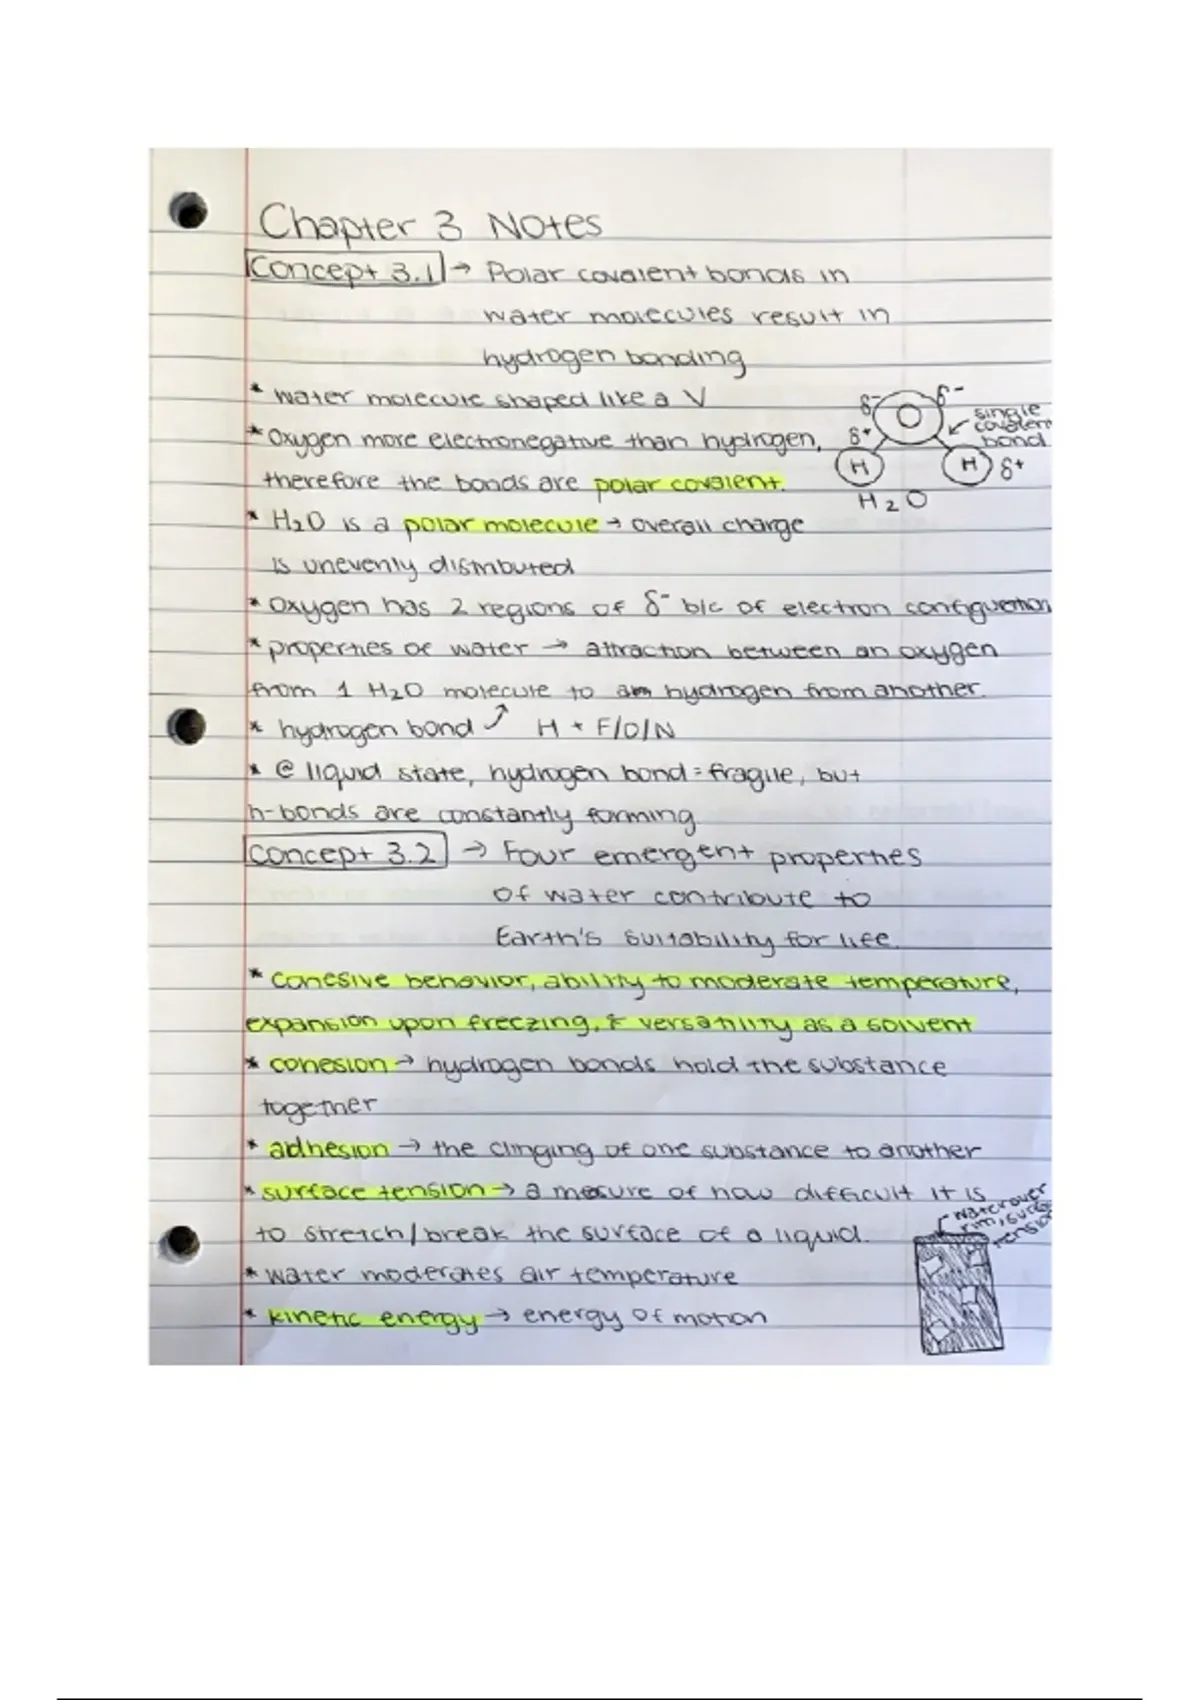 Chapter 3 Notes
Concept 3.1 → Polar covalent bonds in
water molecules result in
hydrogen bonding
* water molecule shaped like a V
* Oxygen more electronegative than hydrogen,
therefore the bonds are polar covalent.
δ- δ-
O
single
covalent
bond
δ+
H H δ+
H₂O
* H₂O is a polar molecule → overall charge
is unevenly distributed
* oxygen has 2 regions of δ- b/c of electron configuration
* properties of water → attraction between an oxygen
from 1 H₂O molecule to an hydrogen from another.
* hydrogen bond ↗ H + F/O/N
* @ liquid state, hydrogen bond = fragile, but
h-bonds are constantly forming
Concept 3.2 → Four emergent properties
of water contribute to
Earth's suitability for life.
* cohesive behavior, ability to moderate temperature,
expansion upon freezing, & versatility as a solvent
* cohesion → hydrogen bonds hold the substance
together
* adhesion → the clinging of one substance to another
* surface tension → a mesure of how difficult it is
to stretch/break the surface of a liquid.
water over
rim, surface
tension
* water moderates air temperature
* kinetic energy → energy of motion